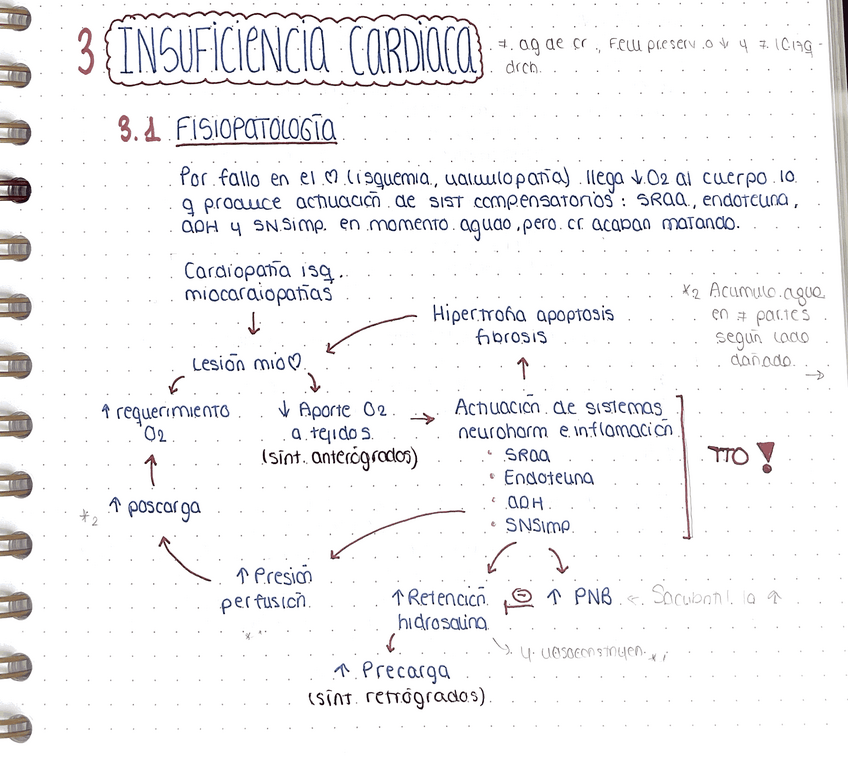 3 INSUFICIENCIA CARDIACA
≠. ag de cr., Feui preserv. o ↓ y ≠. ICizq -
drch.
3.1 FISIOPATOLOGÍA
Por fallo en el ♡ (isquemia, valvulopatía) llega ↓O2 al cuerpo lo
q produce actuación de sist compensatorios: SRAA, endotelina,
ADH y SNSimp. en momento agudo, pero cr acaban matando.
Cardiopatía isq.
miocardiopatías
*2 Acumulo agua
en ≠ partes
según lado
dañado.
→
Hipertrofia apoptosis
fibrosis
Lesión mio♡
↑ requerimiento
O2
↓ Aporte O2
a tejidos
(sínt. anterógrados)
→ Actuación de sistemas
neurohorm e inflamación
• SRAA
• Endotelina
• ADH
• SNSimp
TTO !
*2 ↑ poscarga
↑ Presión
perfusión
*
↑ Retención
hidrosalina
⊖ ↑ PNB ← Sacubitril lo ↑
↳ y vasoconstruyen *,
↑ Precarga
(sínt. retrógrados)